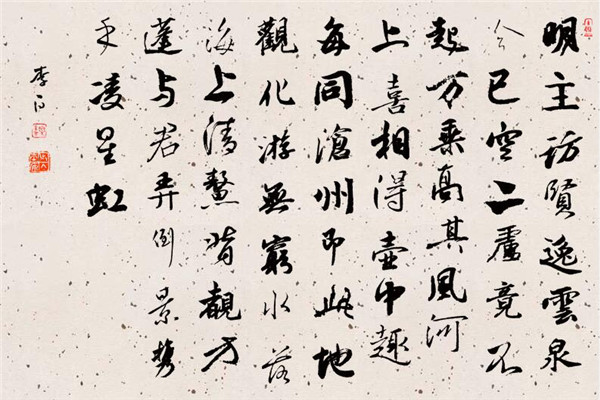 明主訪賢逸雲泉
今已空二盧竟不
起万乘高其風河
上喜相得壺中趣
每同滄州即此地
觀化游無窮水落
海上清鰲背覩方
蓬与君弄倒景攜
手凌星虹
李